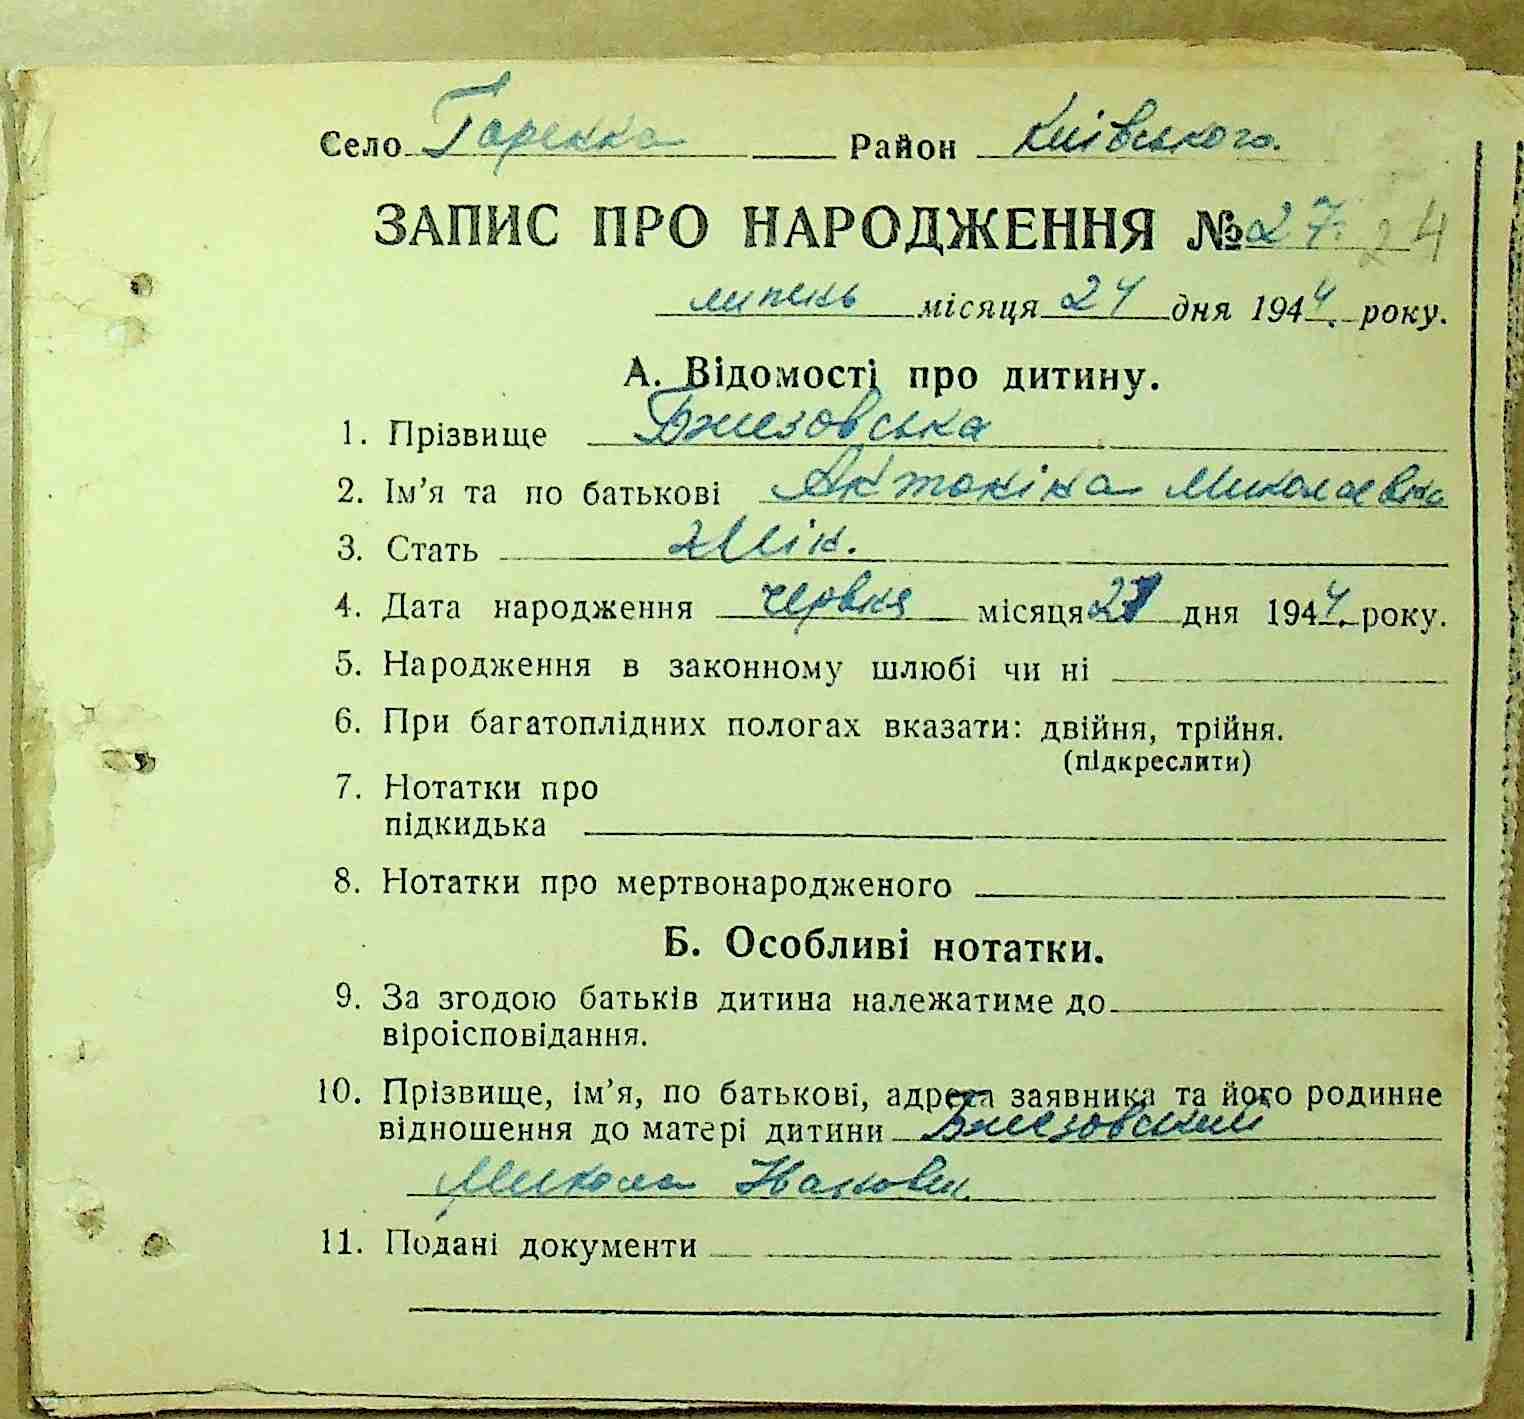 Село Горенка Район Київського.
ЗАПИС ПРО НАРОДЖЕННЯ № 27. 24
липень місяця 24 дня 1944 року.
А. Відомості про дитину.
1. Прізвище Бжезовська
2. Ім'я та по батькові Антоніна Миколаевна
3. Стать жін.
4. Дата народження червня місяця дня 1944 року.
5. Народження в законному шлюбі чи ні
6. При багатоплідних пологах вказати: двійня, трійня.
(підкреслити)
7. Нотатки про
підкидька
8. Нотатки про мертвонародженого
Б. Особливі нотатки.
9. За згодою батьків дитина належатиме до
віроісповідання.
10. Прізвище, ім'я, по батькові, адреса заявника та його родинне
відношення до матері дитини Бжезовский
Микола
11. Подані документи